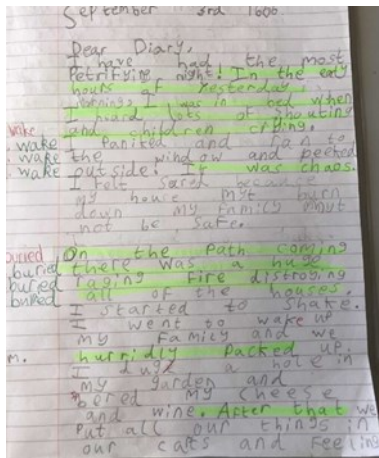 September 3rd 1666
Dear Diary,
I have had the most
Petrifying night! In the early
hours of Yesterday
morning, I was in bed when
I heard lots of shouting
wake and children crying.
wake I panited and ran to
wake the window and peeked
wake outside. It was chaos.
I felt scared because
my house myt burn
down my family myt
not be safe.
buried On the Path coming
buried there was a huge
buried raging fire distroying
buried all of the houses.
I started to shake.
I went to wake up
my family and we
m. hurridly packed up.
I dug a hole in
my garden and
bered my cheese
and wine. After that we
put all our things in
our carts and feeling